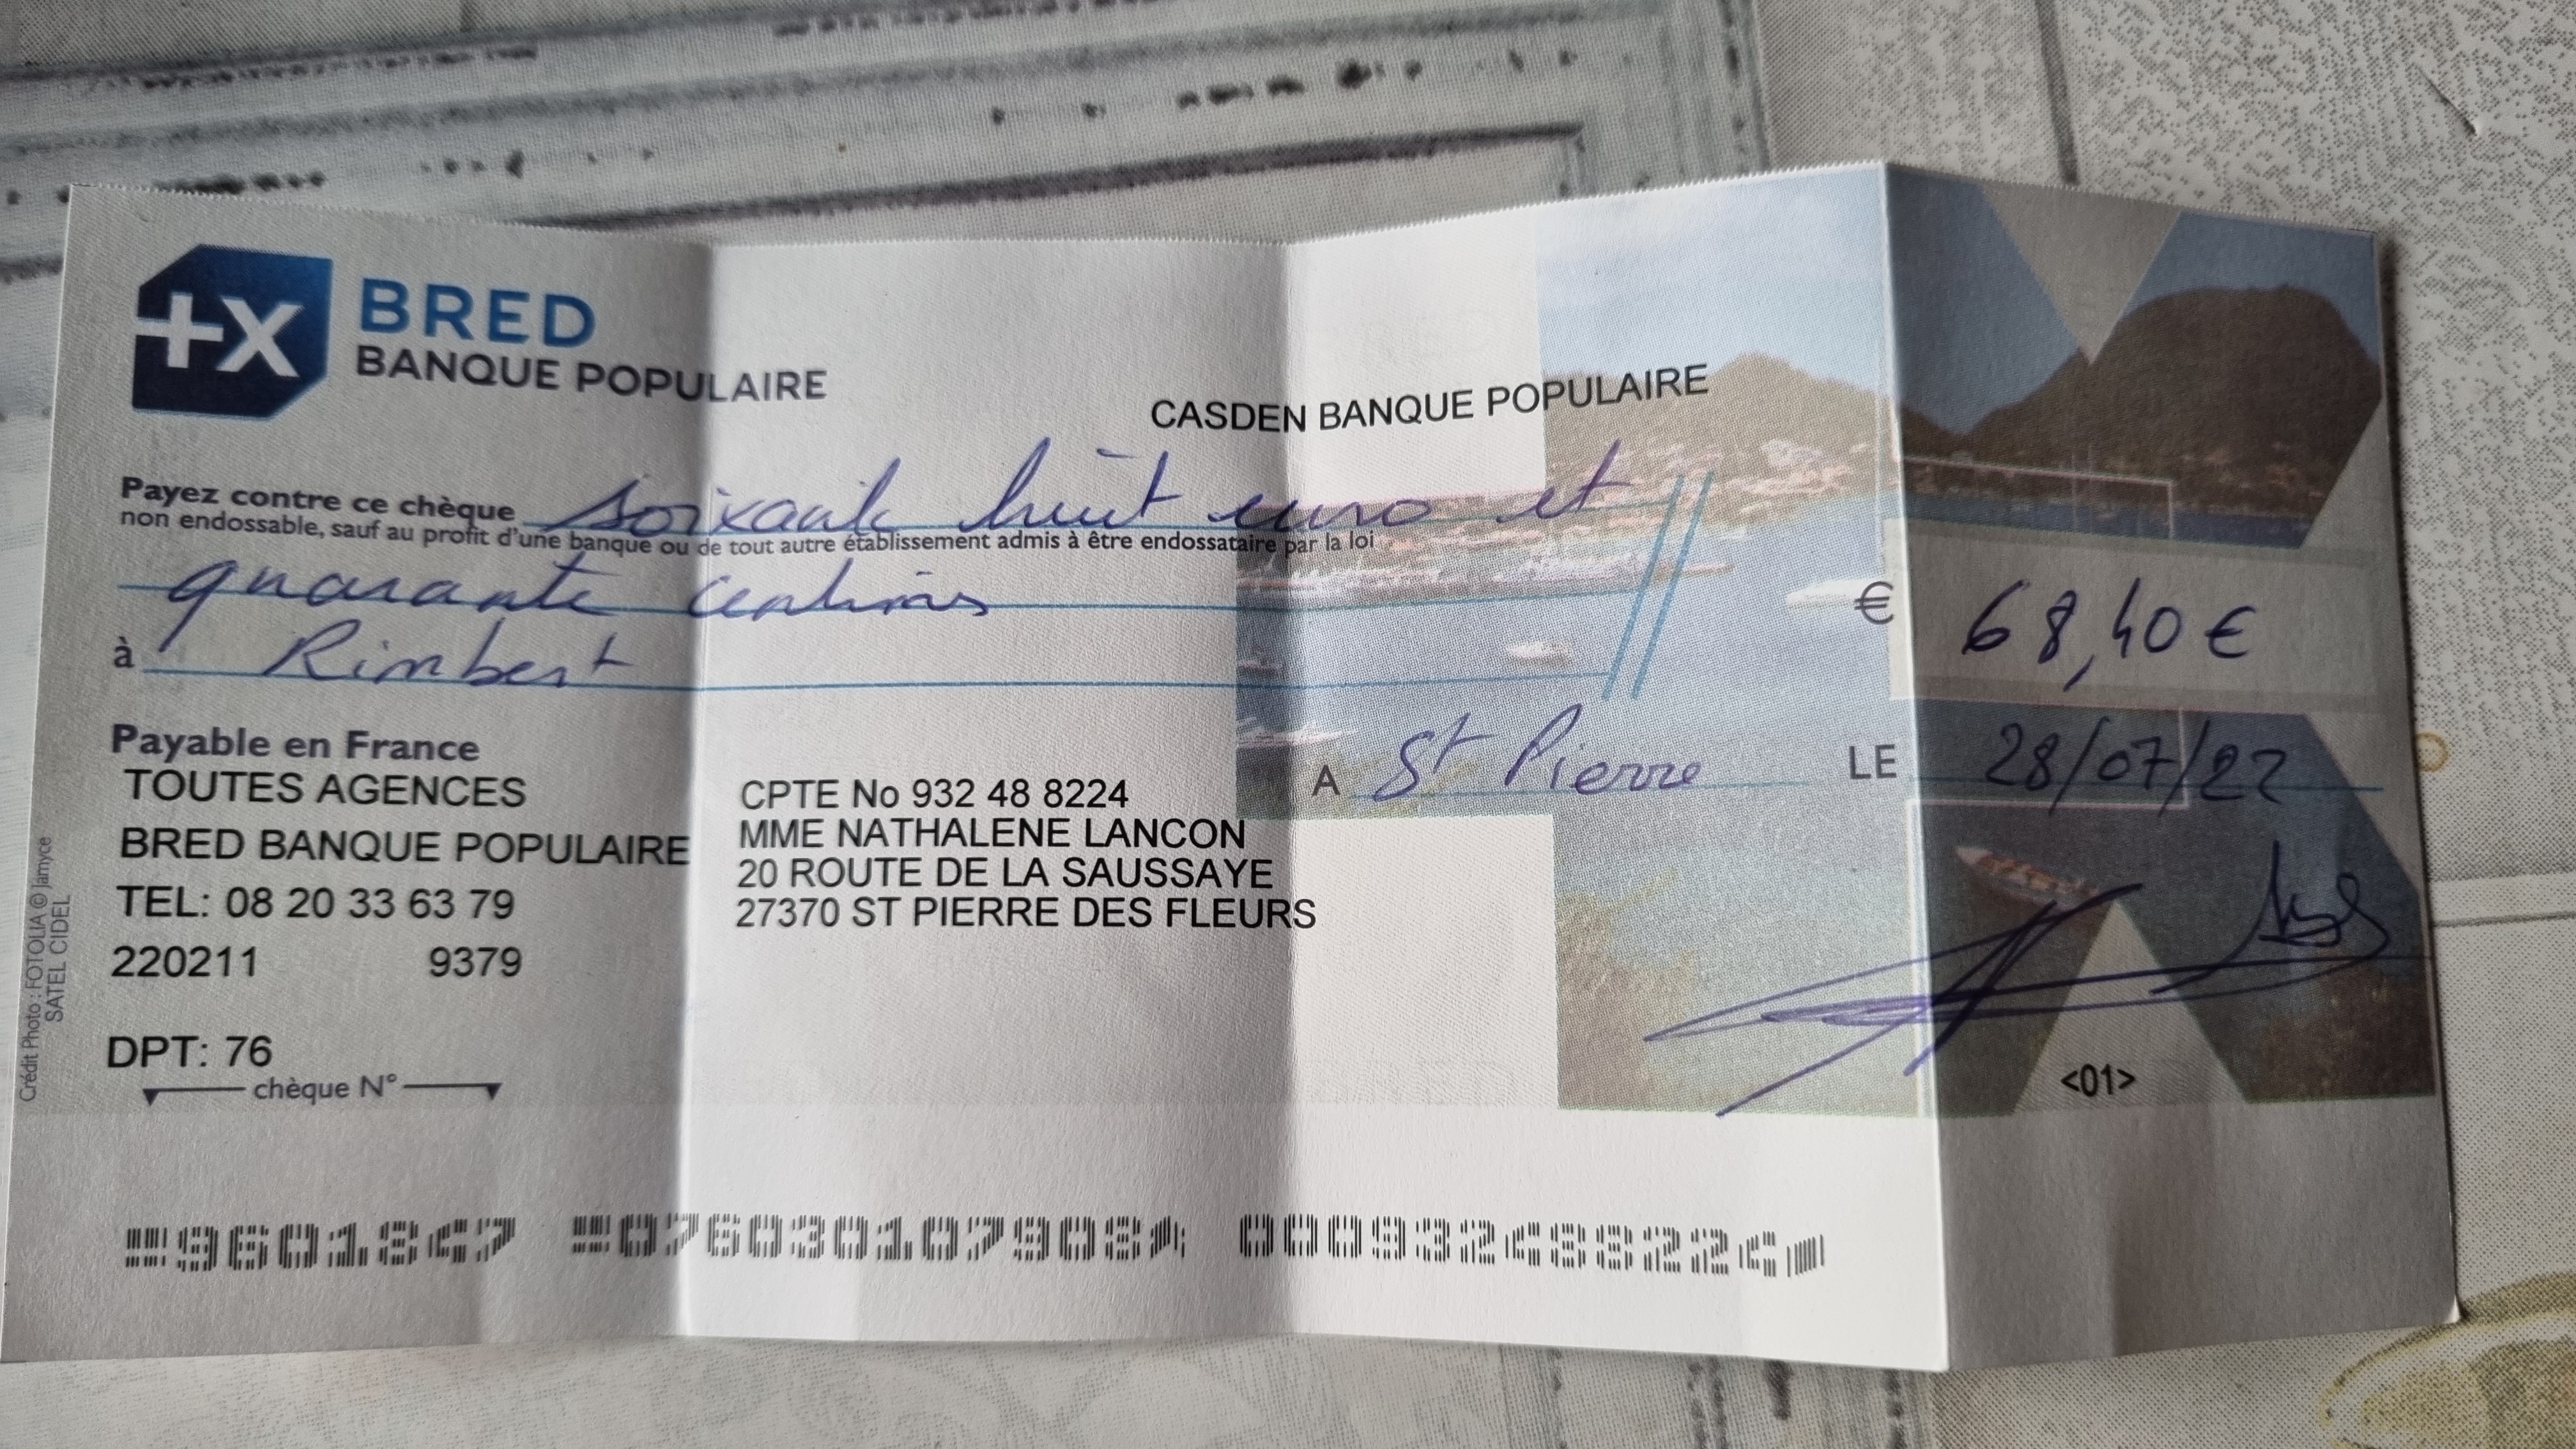 BRED
BANQUE POPULAIRE
CASDEN BANQUE POPULAIRE
Payez contre ce chèque soixante huit euro et
non endossable, sauf au profit d'une banque ou de tout autre établissement admis à être endossataire par la loi
quarante centimes
€ 68,40 €
à Rimbert
Payable en France
TOUTES AGENCES
BRED BANQUE POPULAIRE
TEL.: 08 20 33 63 79
220211 9379
DPT: 76
CPTE No 932 48 8224
MME NATHALENE LANCON
20 ROUTE DE LA SAUSSAYE
27370 ST PIERRE DES FLEURS
A St Pierre LE 28/07/22
chèque N°
<01>
Crédit Photo : FOTOLIA © Jamyce
SATEL CIDEL